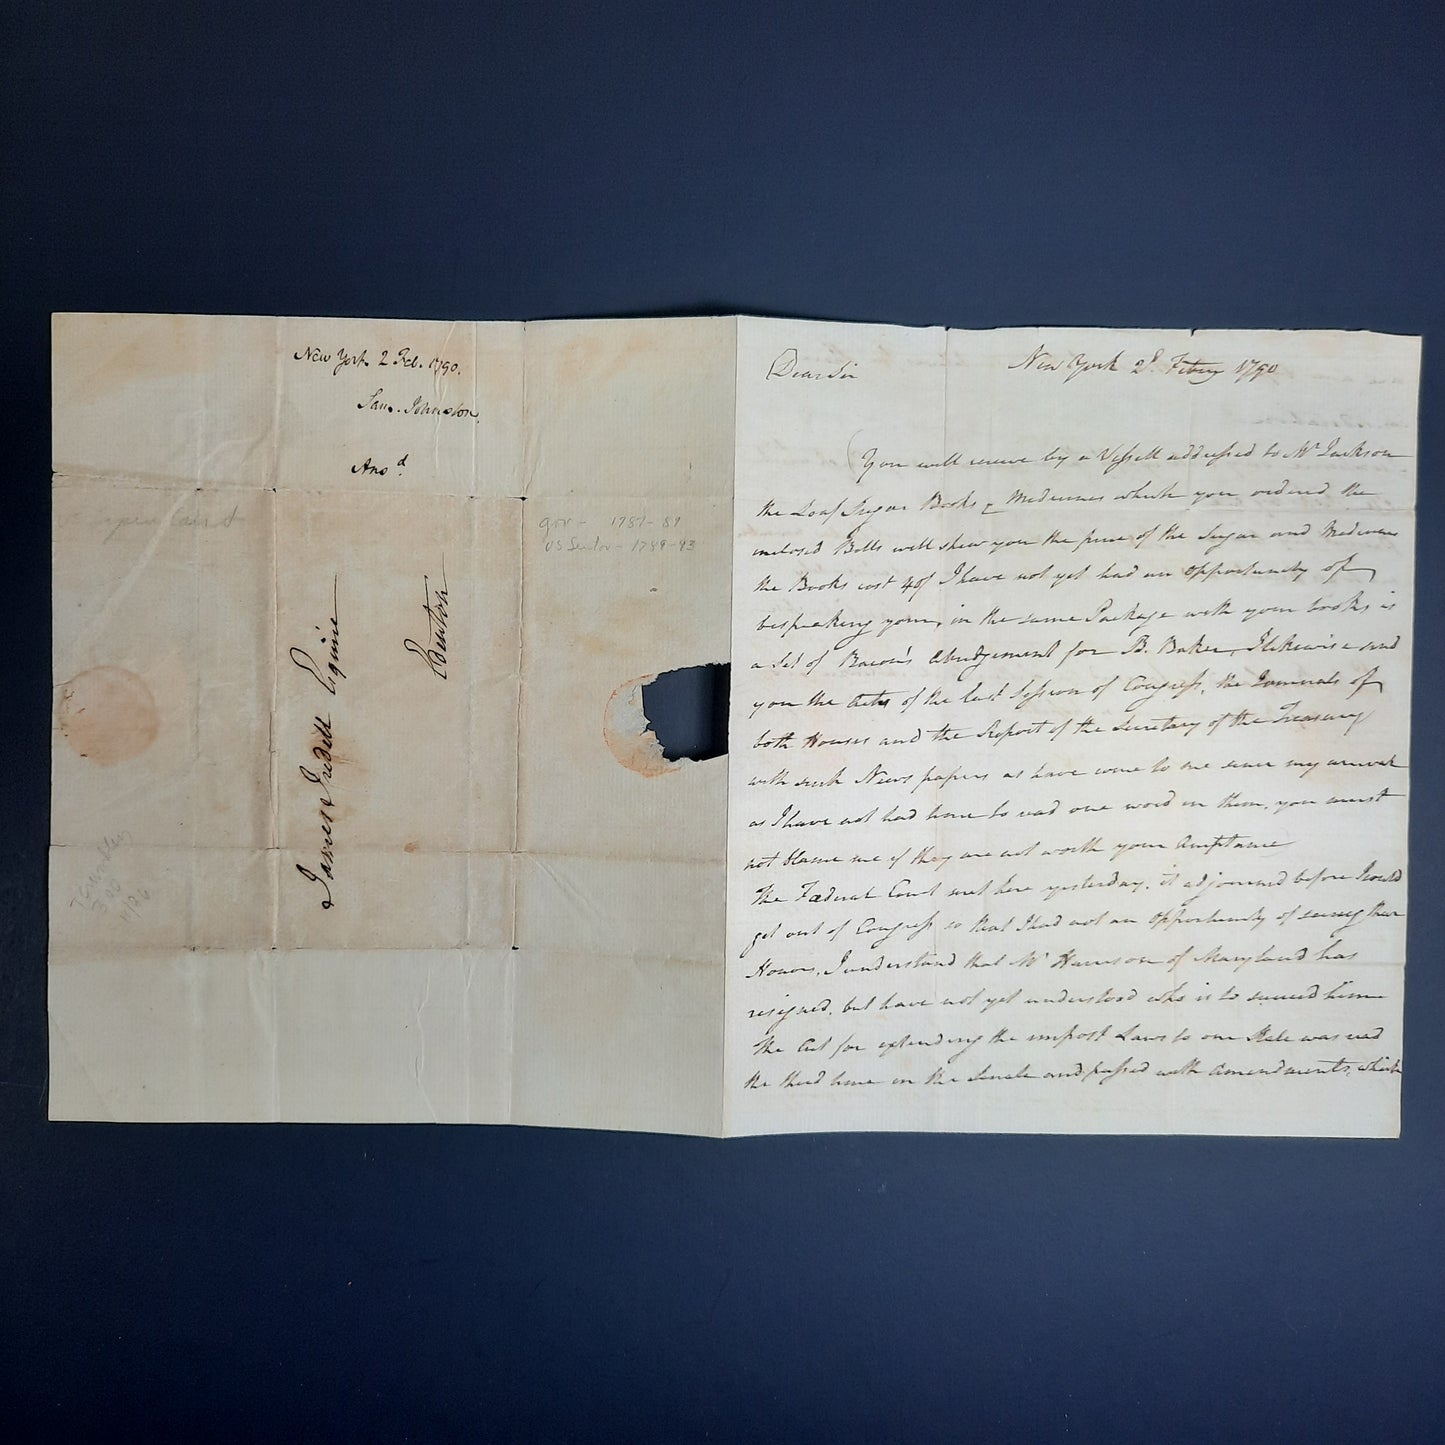 New York 2 Feb. 1790.
Sam. Johnston
Ansd.
gov - 1787-89
US Senator - 1789-93
James Iredell Esquire
Edenton
New York 2d. Febry 1790
Dear Sir
You will receive by a Vessell addressed to Mr Jackson
the Loaf Sugar Books & Medicines which you ordered the
inclosed Bills will shew you the price of the Sugar and Medicines
the Books cost 40/ I have not yet had an opportunity of
bespeaking yours, in the same Package with your books is
a Set of Bacon's Abridgement for B. Baker, I likewise send
you the Acts of the last Session of Congress, the Journals of
both Houses and the Report of the Secretary of the Treasury
with such News papers as have come to me since my arrival
as I have not had time to read one word in them, you must
not blame me if they are not worth your Acceptance
The Fæderal Court met here yesterday, it adjourned before I could
get out of Congress so that I had not an opportunity of seeing their
Honors, I understand that Mr Harrison of Maryland has
resigned, but have not yet understood who is to succeed him
The Act for extending the impost Laws to our State was read
the third time in the Senate and passed with Amendments, which